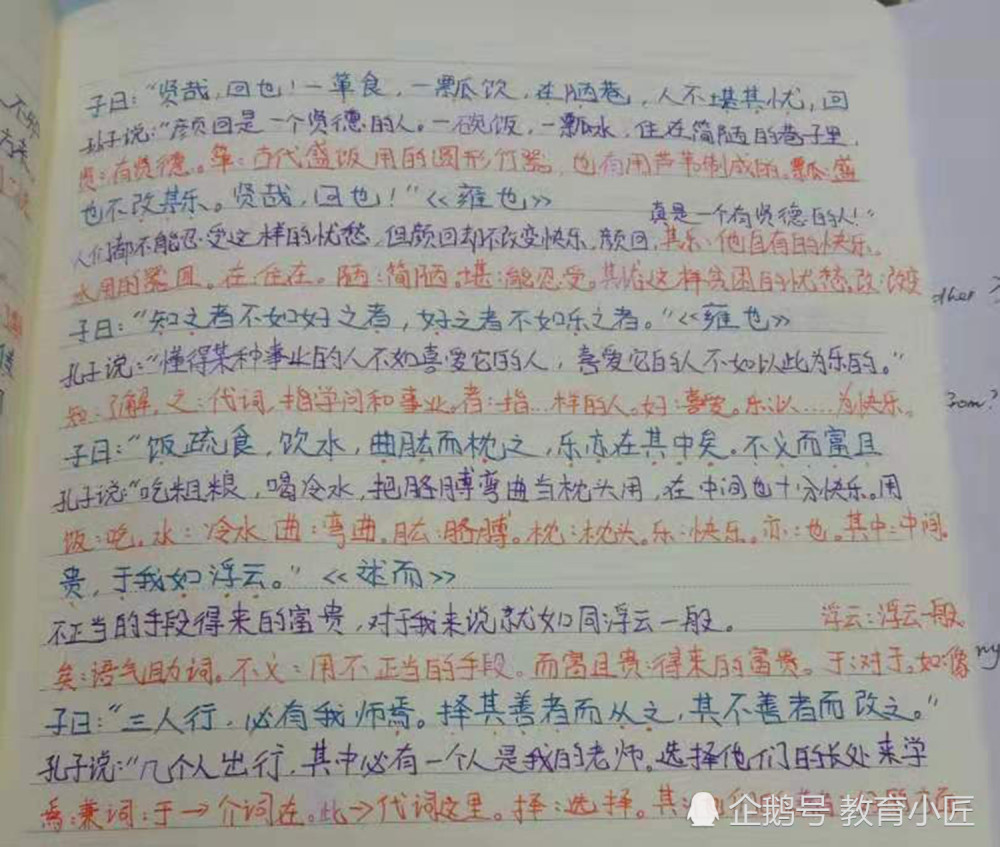 子曰：“贤哉，回也！一箪食，一瓢饮，在陋巷，人不堪其忧，回
孔子说：“颜回是一个贤德的人。一碗饭，一瓢水，住在简陋的巷子里，
贤：有贤德。箪：古代盛饭用的圆形竹器，也有用芦苇制成的。瓢：盛
也不改其乐。贤哉，回也！”《雍也》
真是一个有贤德的人！”
人们都不能忍受这样的忧愁，但颜回却不改变快乐，颜回，其乐：他自有的快乐。
水用的器皿。在：住在。陋：简陋。堪：能忍受。其忧这样穷困的忧愁。改：改变
子曰：“知之者不如好之者，好之者不如乐之者。”《雍也》
孔子说：“懂得某种事业的人不如喜爱它的人，喜爱它的人不如以此为乐的。”
知：了解，之：代词，指学问和事业。者：指…样的人。好：喜爱。乐：以……为快乐。
子曰：“饭疏食，饮水，曲肱而枕之，乐亦在其中矣。不义而富且
孔子说：“吃粗粮，喝冷水，把胳膊弯曲当枕头用，在中间也十分快乐。用
饭：吃。水：冷水 曲：弯曲。肱：胳膊。枕：枕头。乐：快乐。亦：也。其中：中间。
贵，于我如浮云。”《述而》
不正当的手段得来的富贵，对于我来说就如同浮云一般。
浮云：浮云一般
矣：语气助词。不义：用不正当的手段。而富且贵：得来的富贵。于：对于。如：像
子曰：“三人行，必有我师焉。择其善者而从之，其不善者而改之。”
孔子说：“几个人出行，其中必有一个人是我的老师。选择他们的长处来学
焉：兼词：于→介词在。此→代词这里。择：选择。其：
企鹅号 教育小匠
other？